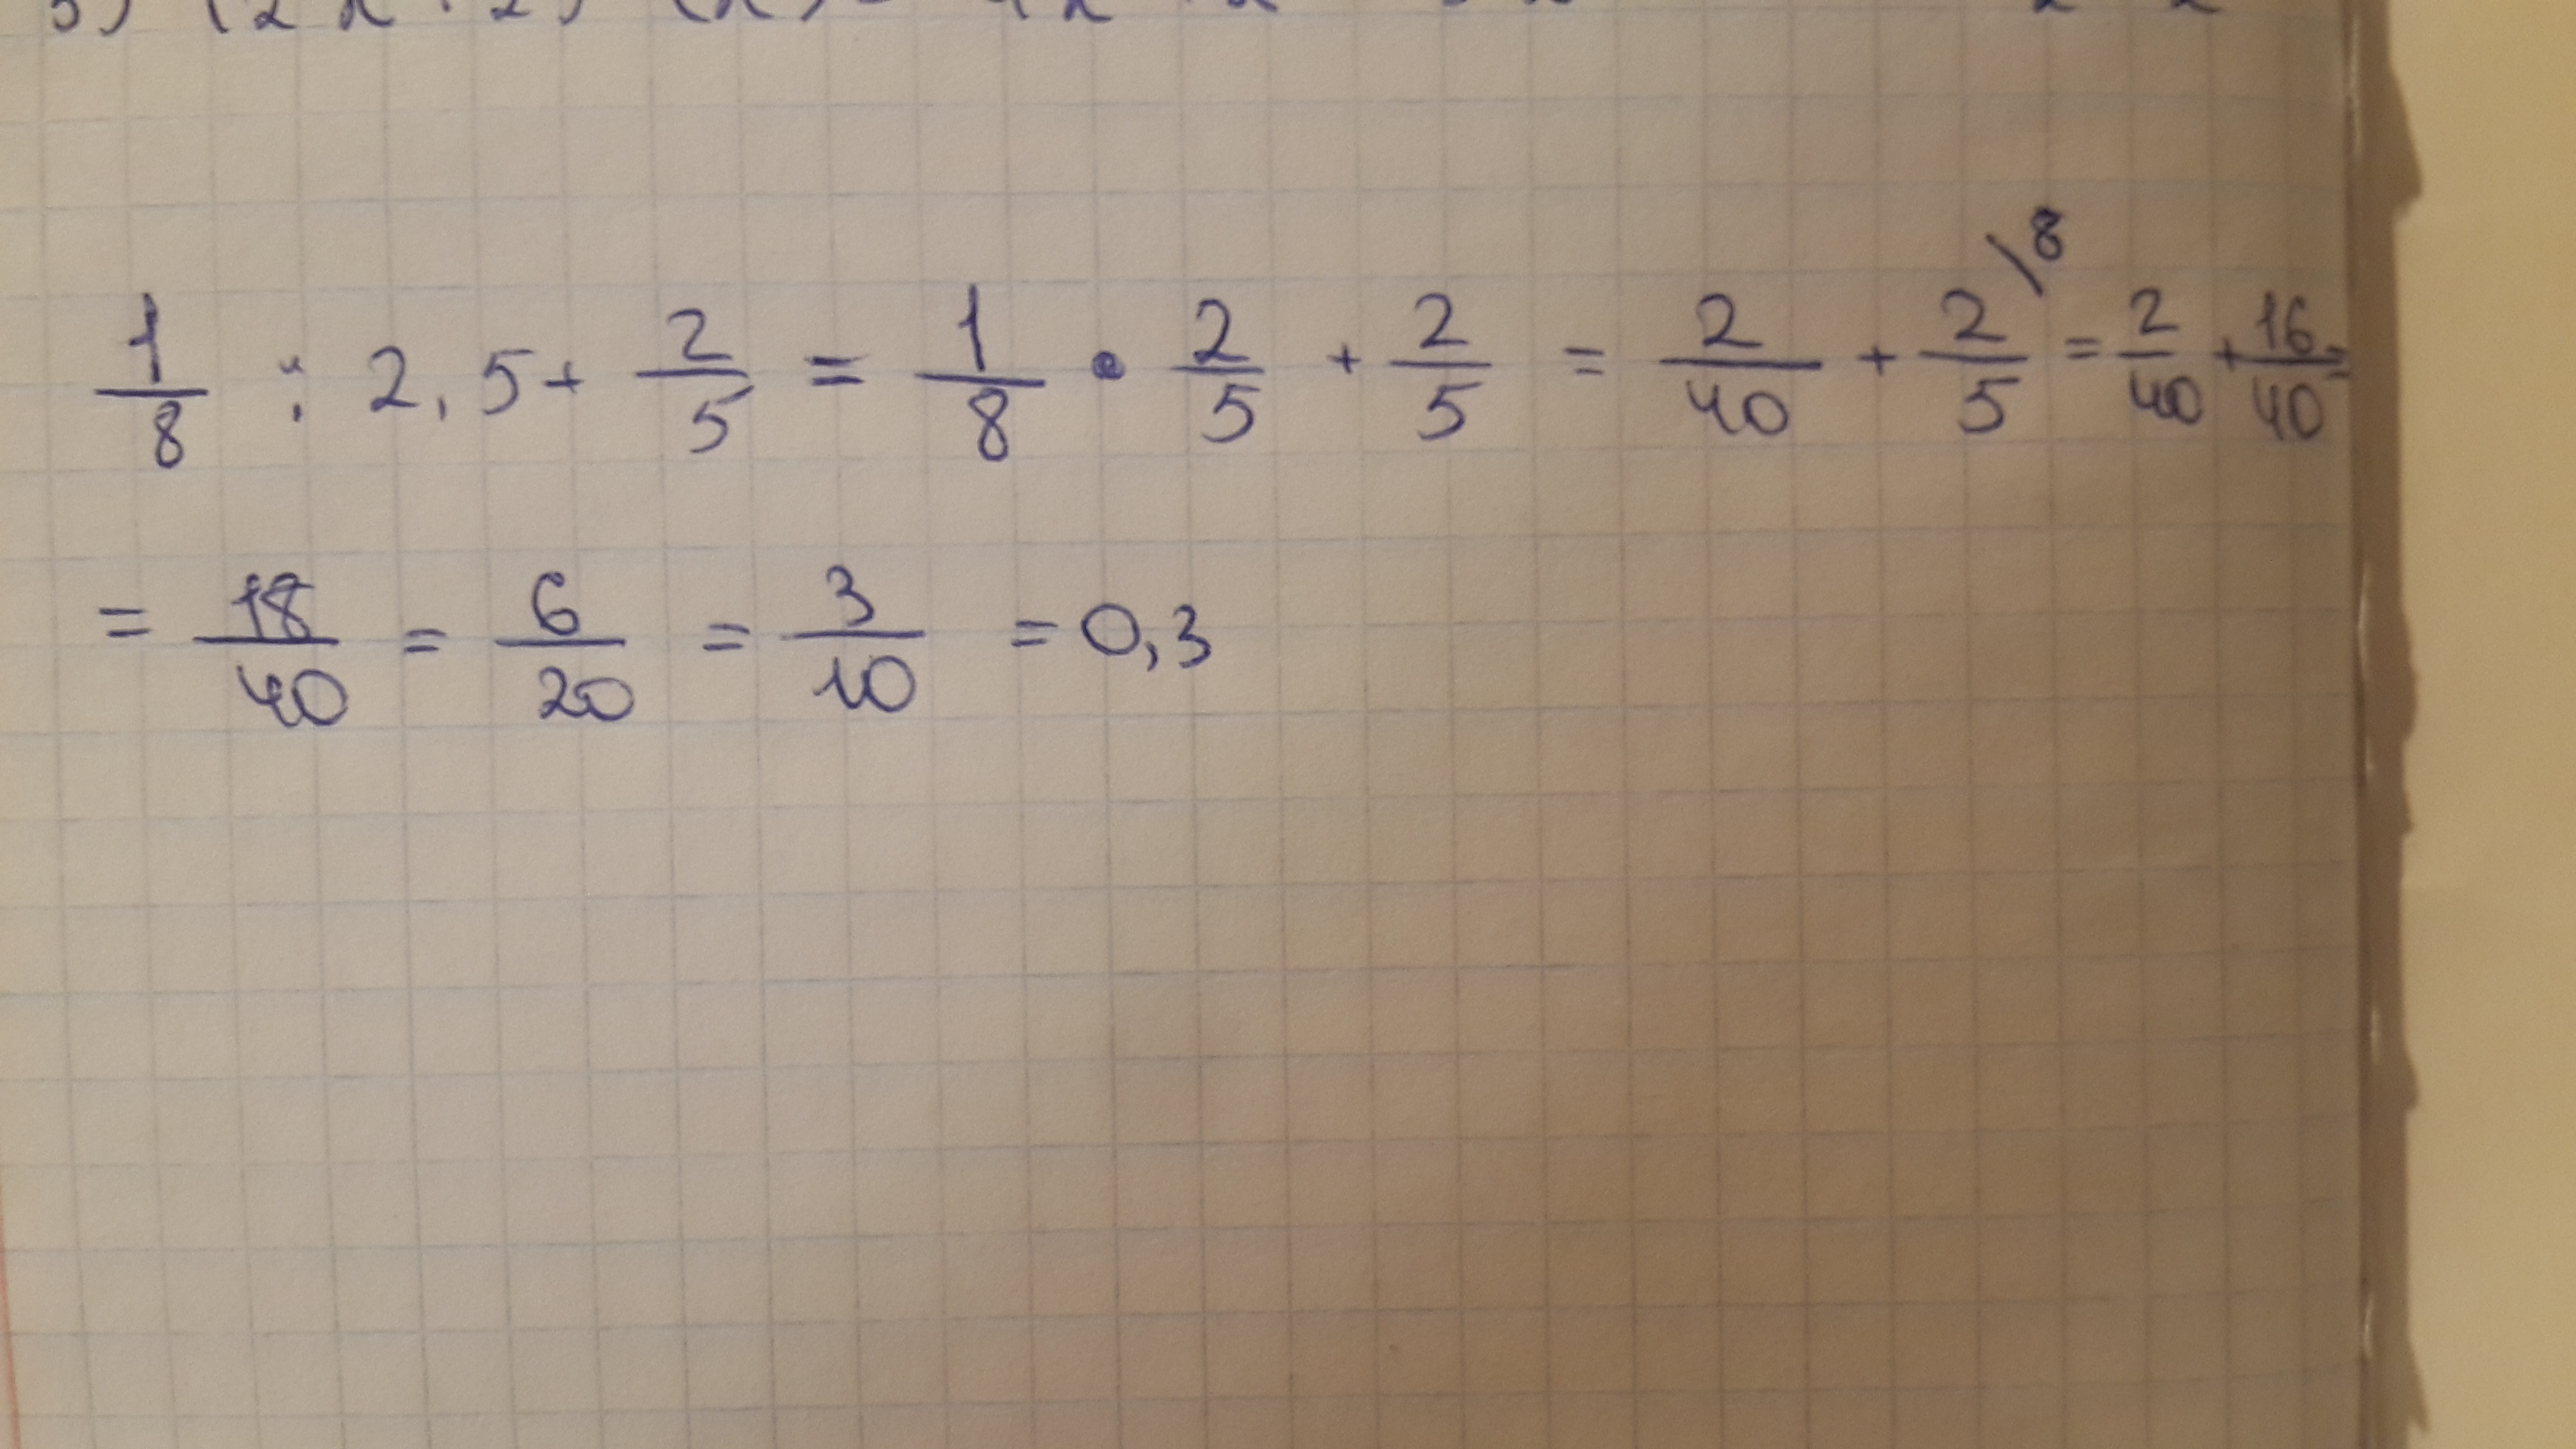 1/8 : 2,5 + 2/5 = 1/8 • 2/5 + 2/5 = 2/40 + 2/5 \8 = 2/40 + 16/40 =
= 18/40 = 6/20 = 3/10 = 0,3